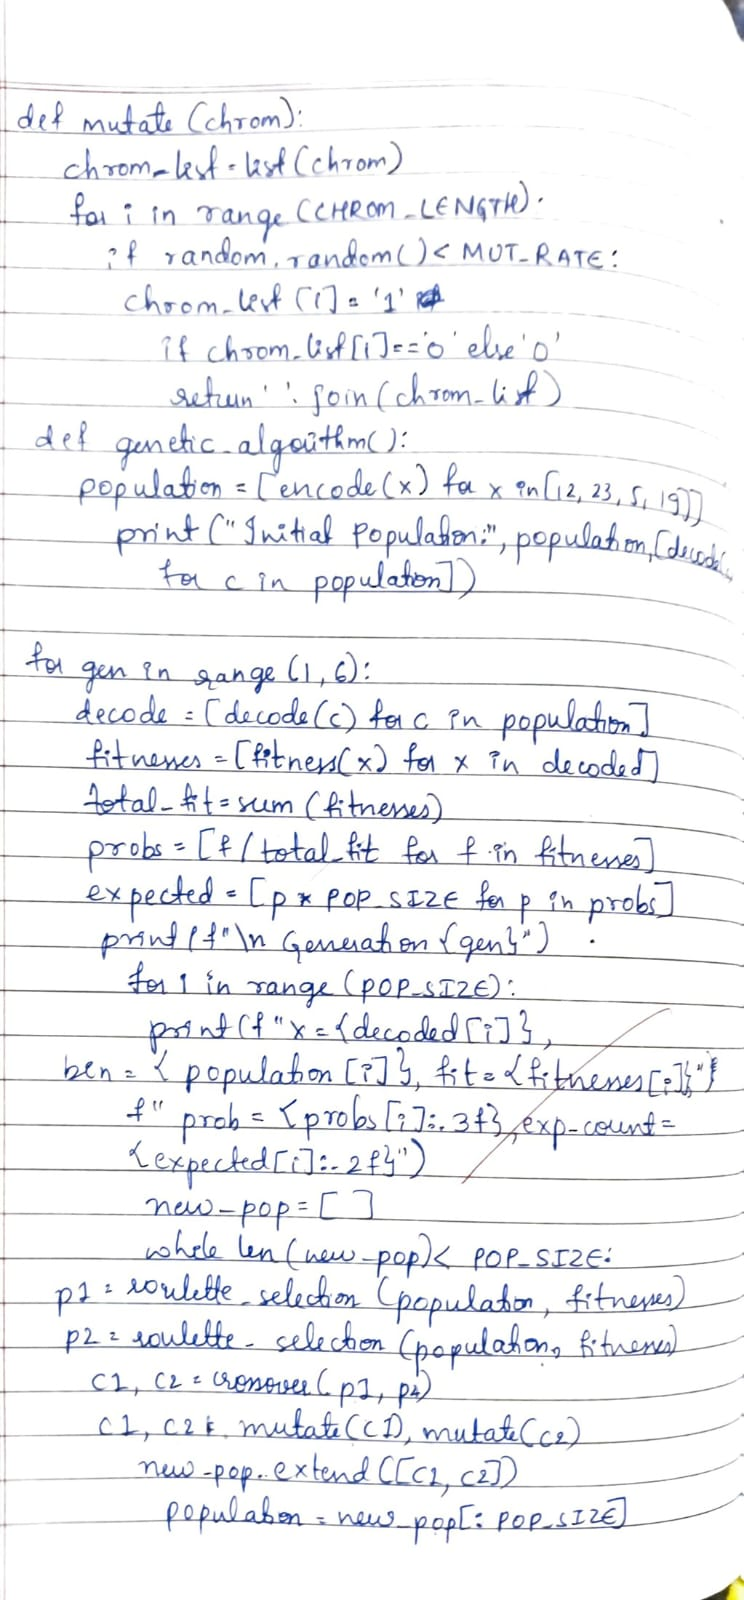 def mutate (chrom):
chrom_list = list (chrom)
for i in range (CHROM_LENGTH):
if random.random() < MUT_RATE:
chrom_list [i] = '1'
if chrom_list [i] == '0' else '0'
return ''.join (chrom_list)
def genetic_algorithm():
population = [encode(x) for x in [12, 23, 5, 19]]
print ("Initial Population:", population, [decode(
for c in population])
for gen in range (1, 6):
decode = [decode(c) for c in population]
fitnesses = [fitness(x) for x in decoded]
total_fit = sum (fitnesses)
probs = [f / total_fit for f in fitnesses]
expected = [p * POP_SIZE for p in probs]
print (f"\n Generation {gen}")
for i in range (POP_SIZE):
print (f"x = {decoded [i]},
ben = { population [i]}, fit = {fitnesses [i]}"
f" prob = {probs [i]:.3f}, exp_count =
{expected [i]:.2f}")
new_pop = [ ]
while len (new_pop) < POP_SIZE:
p1 = roulette_selection (population, fitnesses)
p2 = roulette_selection (population, fitnesses)
c1, c2 = crossover (p1, p2)
c1, c2 = mutate (c1), mutate (c2)
new_pop.extend ([c1, c2])
population = new_pop [: POP_SIZE]